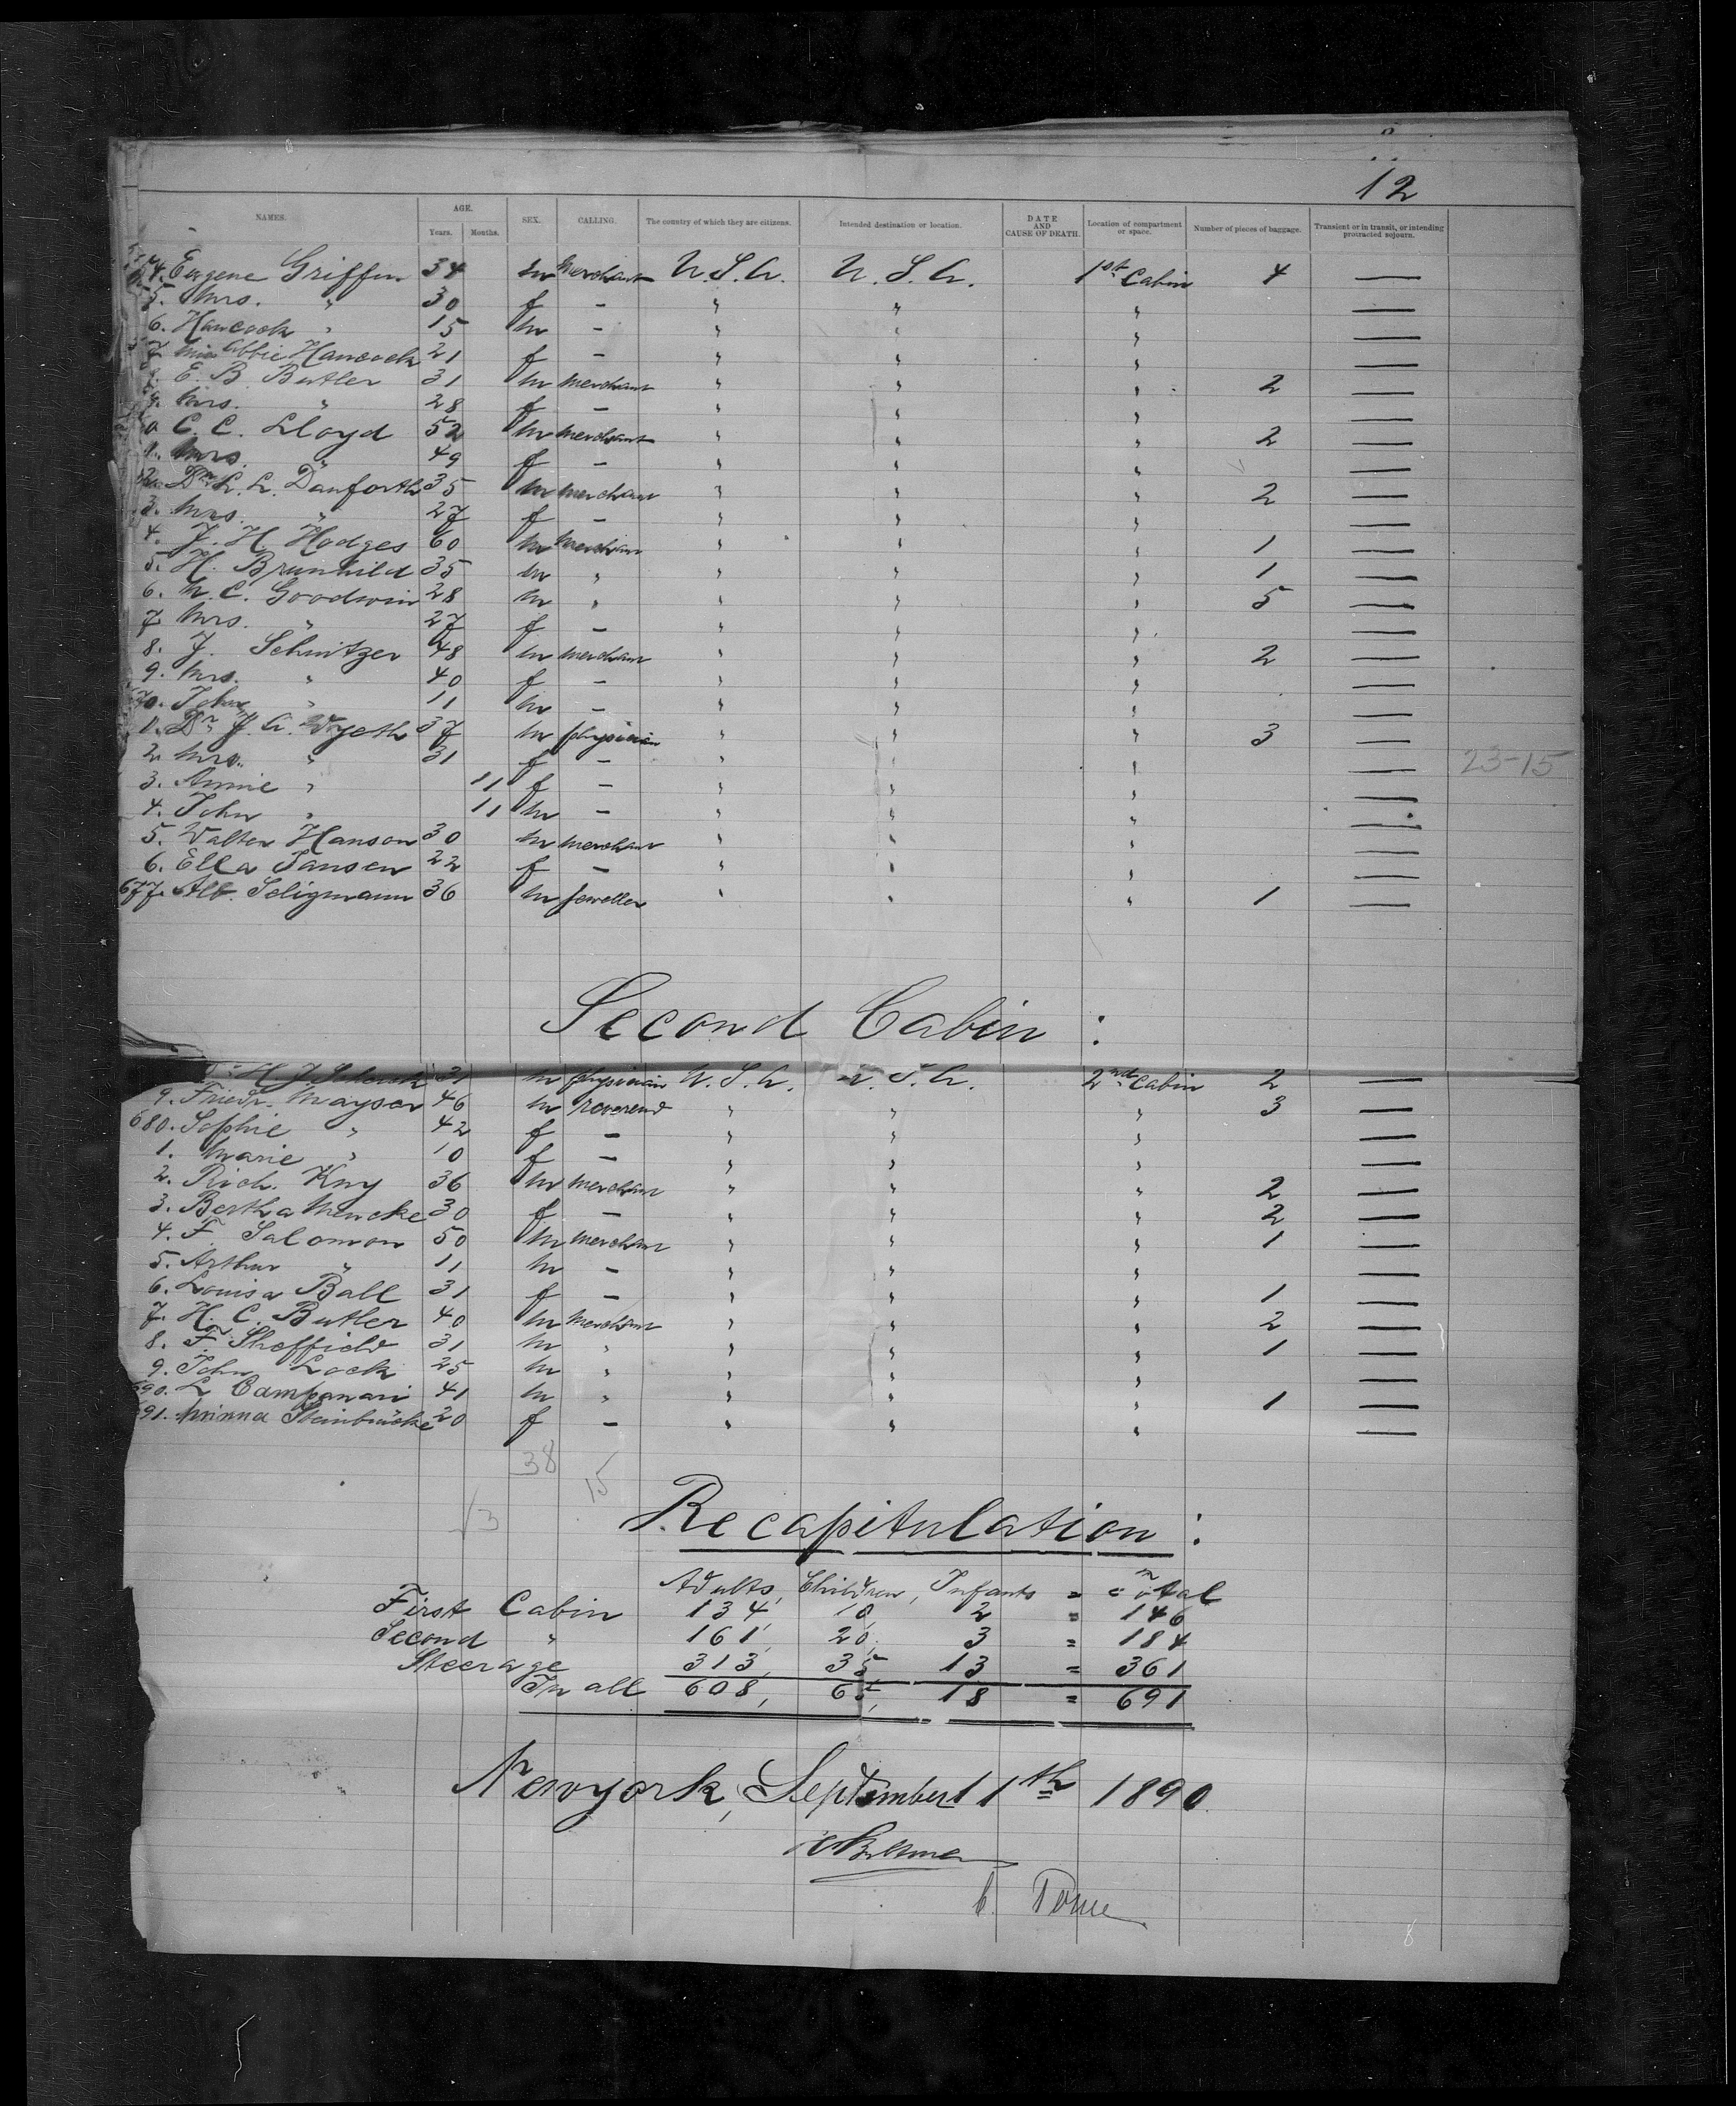 12
NAMES. AGE. Years. Months. SEX. CALLING. The country of which they are citizens. Intended destination or location. DATE AND CAUSE OF DEATH. Location of compartment or space. Number of pieces of baggage. Transient or in transit, or intending protracted sojourn.
4. Eugene Griffin 34 m Merchant U.S.A. U.S.A. 1st Cabin 4 —
5. Mrs. " 30 f – " " " —
6. Hancock " 15 m – " " " —
7. Miss Abbie Hancock 21 f – " " " —
8. E. B. Butler 31 m merchant " " " 2 —
9. Mrs. " 28 f – " " " —
0. C. C. Lloyd 52 m merchant " " " 2 —
1. Mrs. " 49 f – " " " —
2. Dr. L. L. Danforth 35 m merchant " " " 2 —
3. Mrs. " 27 f – " " " —
4. J. H. Hodges 60 m merchant " " " 1 —
5. H. Brunhild 35 m " " " " 1 —
6. N. C. Goodwin 28 m " " " " 5 —
7. Mrs. " 27 f – " " " —
8. J. Schnitzer 48 m merchant " " " 2 —
9. Mrs. " 40 f – " " " —
70. John " 11 m – " " " —
1. Dr. J. A. Wyeth 37 m physician " " " 3 —
2. Mrs. " 31 f – " " " — 23-15
3. Annie " 11 f – " " " —
4. John " 11 m – " " " —
5. Walter Hanson 30 m merchant " " " —
6. Ella Jansen 22 f – " " " —
677. Alb. Seligmann 36 m jeweller " " " 1 —
Second Cabin :
H. J. 31 m physician U.S.A. U.S.A. 2nd Cabin 2 —
9. Friedr. Mayser 46 m reverend " " " 3 —
680. Sophie " 42 f – " " " —
1. Marie " 10 f – " " " —
2. Rich. Kny 36 m merchant " " " 2 —
3. Bertha Mencke 30 f – " " " 2 —
4. F. Salomon 50 m merchant " " " 1 —
5. Arthur " 11 m – " " " —
6. Louisa Ball 31 f – " " " 1 —
7. H. C. Butler 40 m merchant " " " 2 —
8. F. Sheffield 31 m " " " " 1 —
9. John Lock 25 m " " " " —
690. L. Campanari 41 m " " " " 1 —
691. Minna Steinbrücke 20 f – " " " —
38
15
13
Recapitulation :
Adults, Children, Infants = Total
First Cabin 134, 10, 2 = 146
Second " 161, 20, 3 = 184
Steerage 313, 35 13 = 361
In all 608, 65, 18 = 691
Newyork, September 11th 1890
8